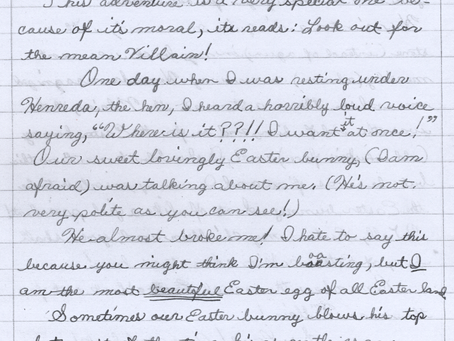 This adventure is a very special one be-
cause of it's moral, its reads: Look out for
the mean Villain!
One day when I was resting under
Henreda, the hen, I heard a horribly loud voice
saying, "Where is it??!! I want it at once!"
Our sweet lovingly Easter bunny, (I am
afraid) was talking about me. (He's not
very polite as you can see!)
We almost broke me! I hate to say this
because you might think I'm boasting, but I
am the most beautiful Easter egg of all Easter land
Sometimes our Easter bunny blows his top